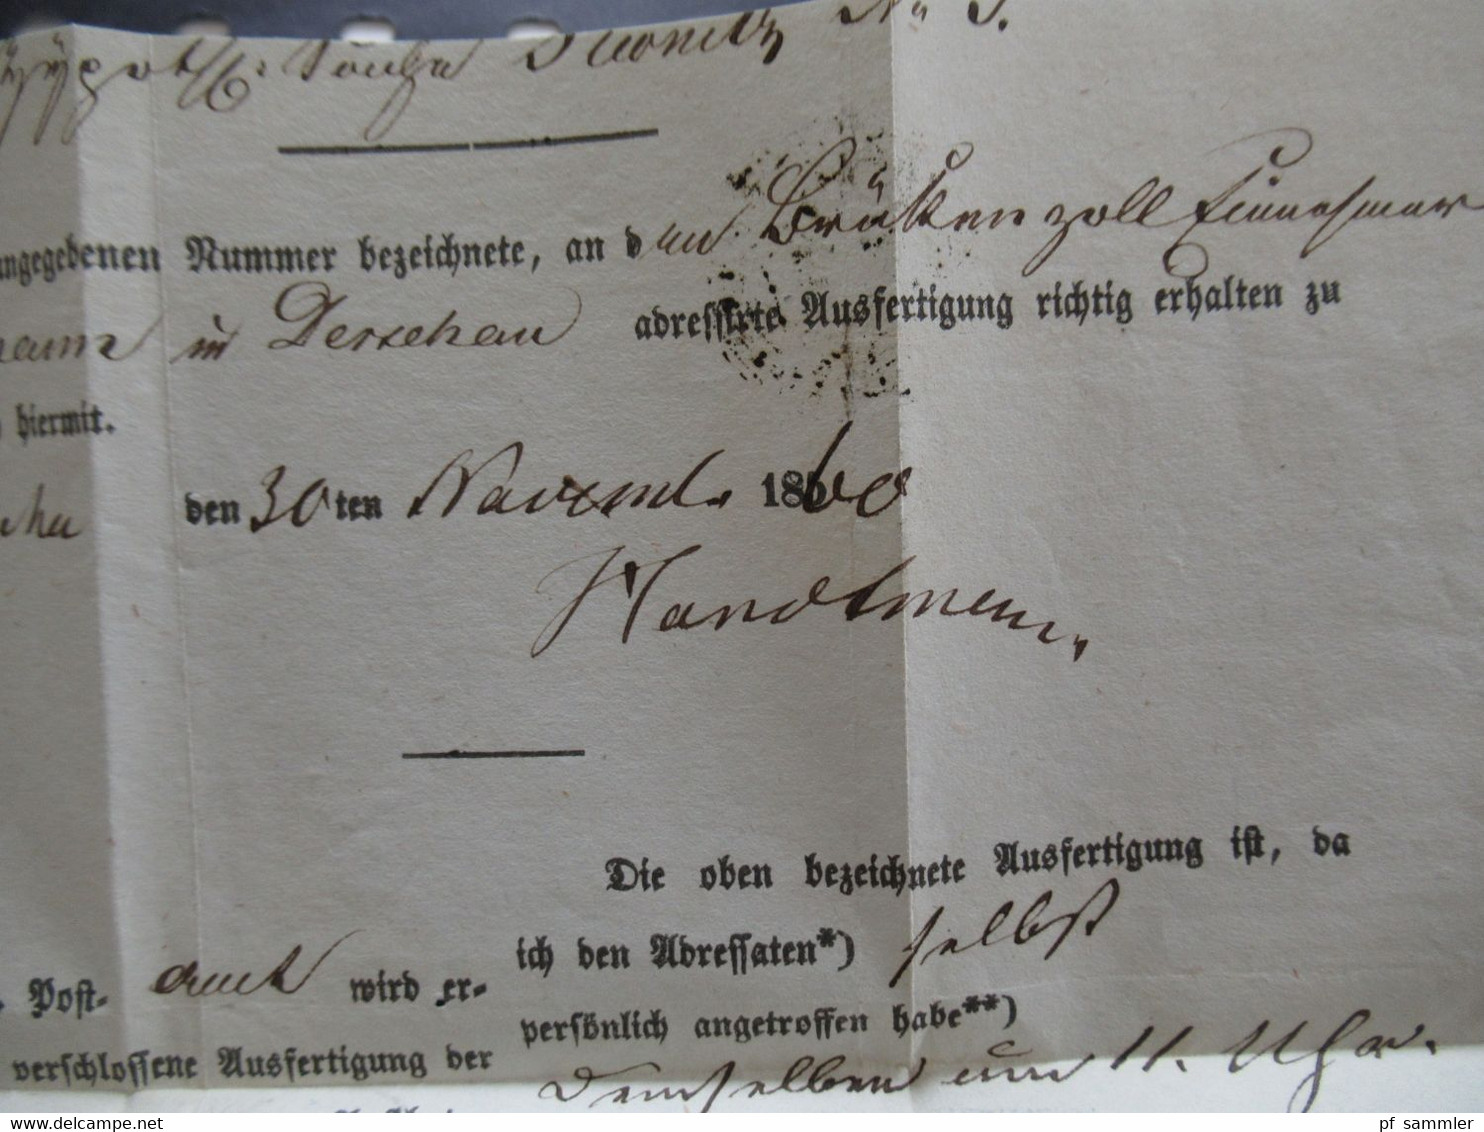 angegebenen Nummer bezeichnete, an den Brükenzoll Einnehmer
in Derschau adressirte Ausfertigung richtig erhalten zu
hiermit.
den 30ten Novembr. 1860
Die oben bezeichnete Ausfertigung ist, da
ich den Adressaten*) selbst
Post- amt wird er-
persönlich angetroffen habe**)
verschlossene Ausfertigung der
demselben um 11. Uhr.
www.delcampe.net
pf_sammler